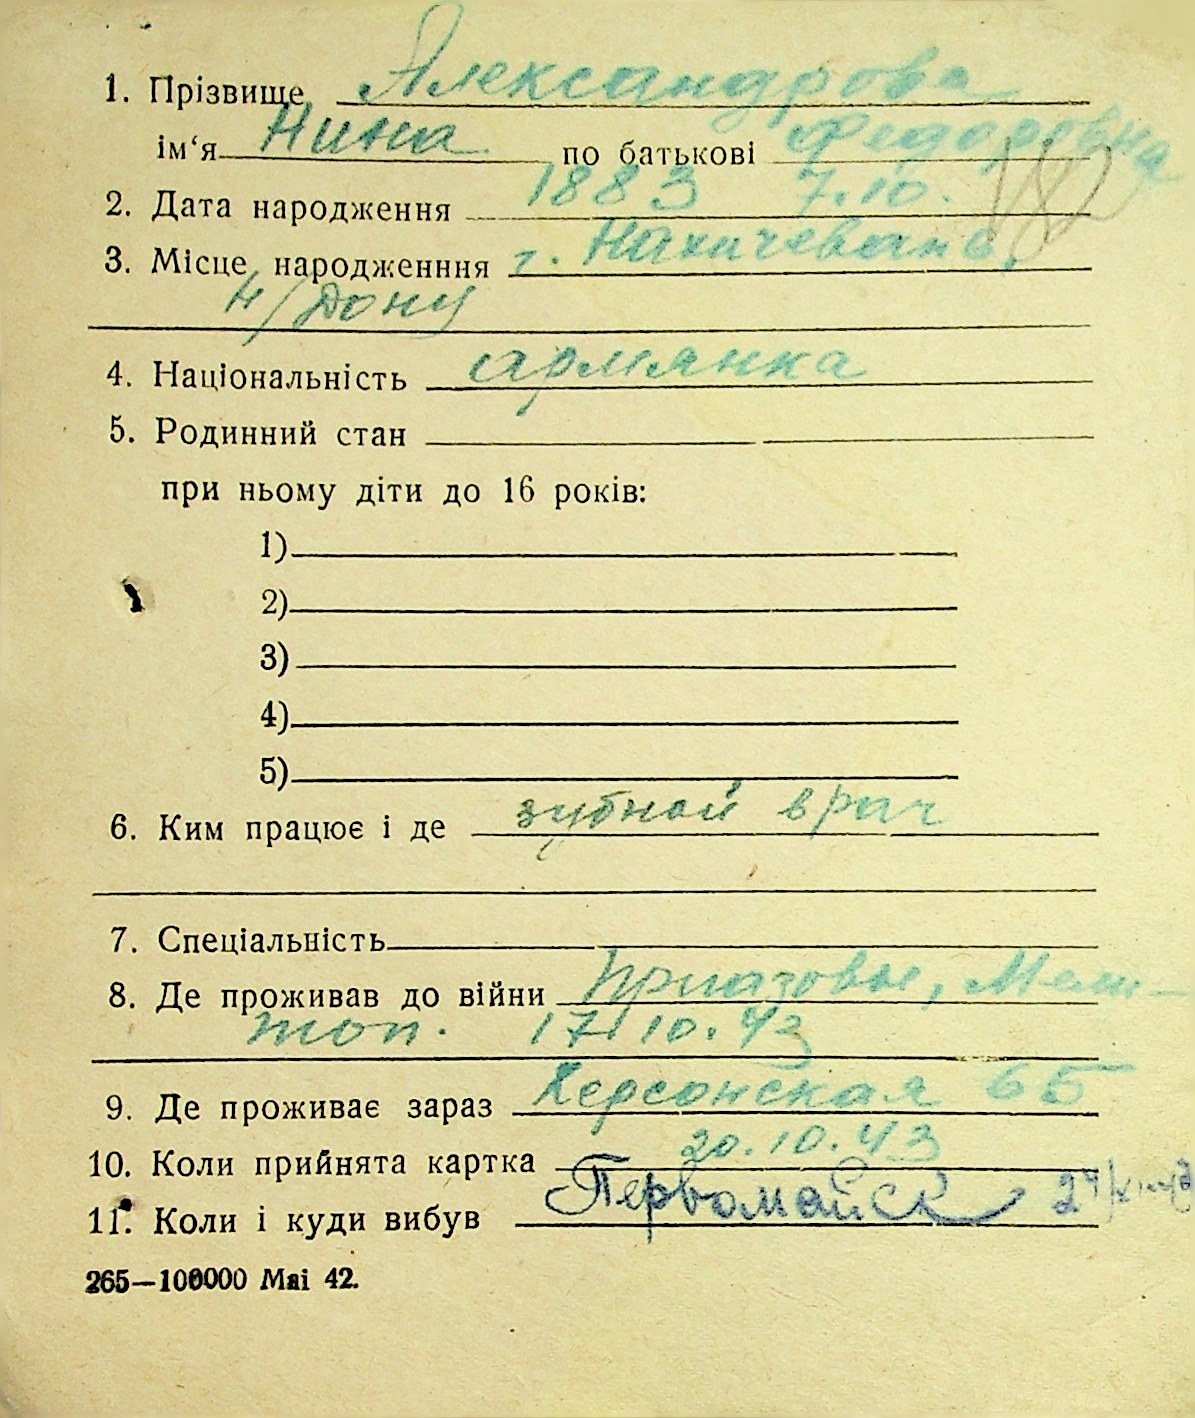 1. Прізвище Александрова
ім‘я Нина по батькові Федоровна
2. Дата народження 1883 7.10.
3. Місце народженння г. Нахичевань
н/Дону
4. Національність армянка
5. Родинний стан
при ньому діти до 16 років:
1)
2)
3)
4)
5)
6. Ким працює і де зубной врач
7. Спеціальність
8. Де проживав до війни Приазовье, Мели-
топ. 17.10.43
9. Де проживає зараз Херсонская 65
10. Коли прийнята картка 20.10.43
11. Коли і куди вибув Первомайск
265—100000 Mai 42.